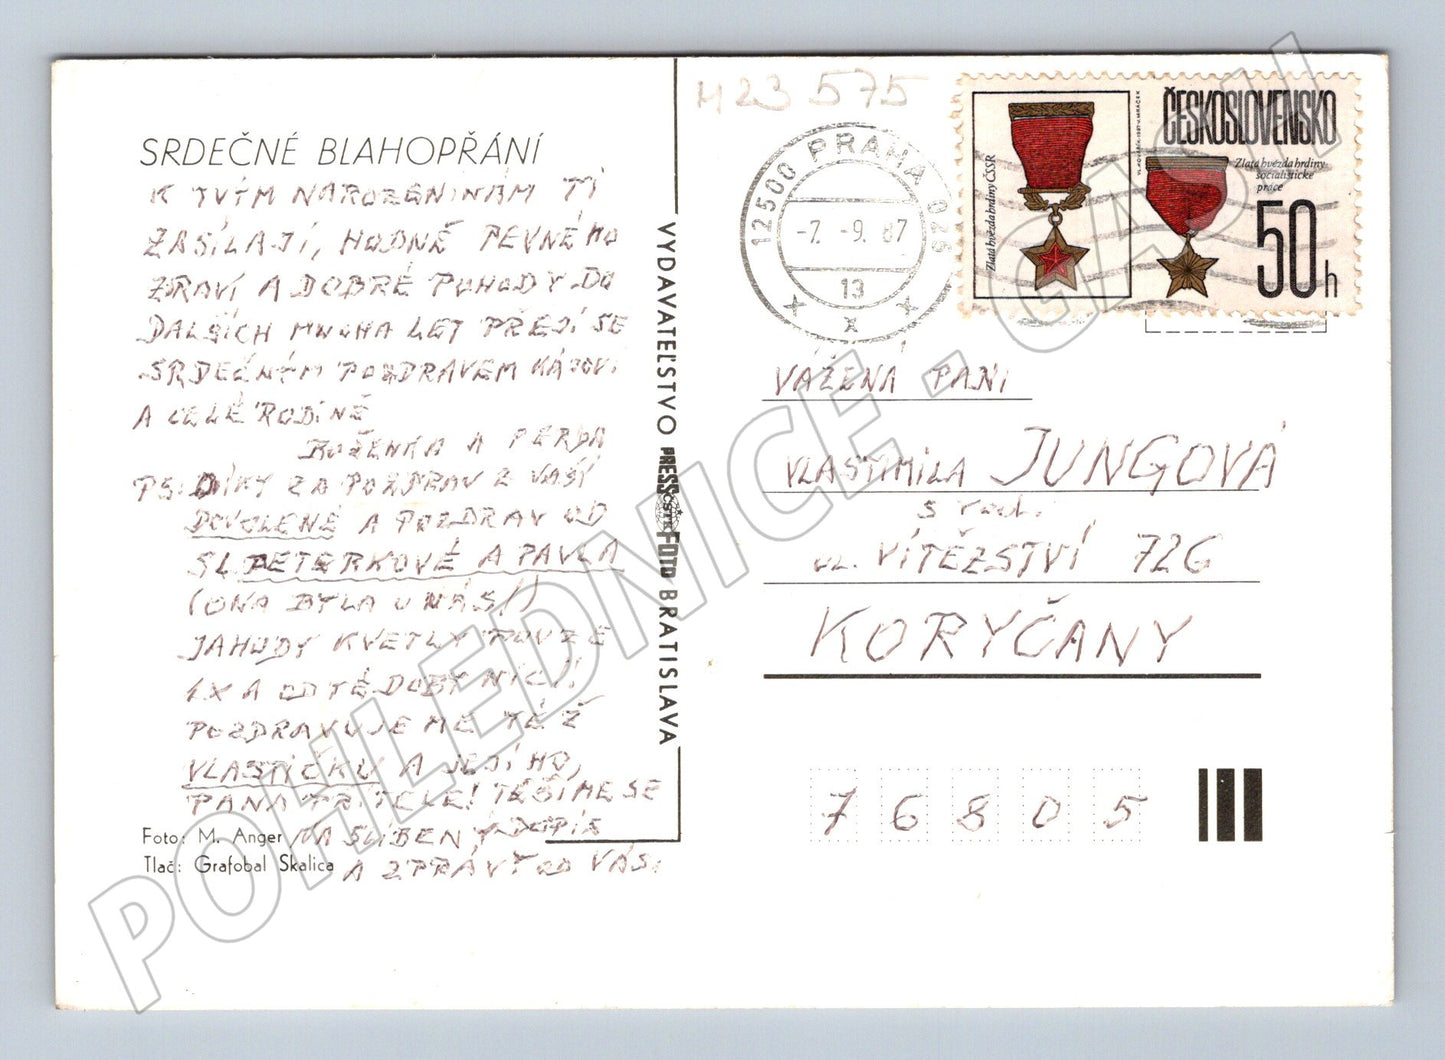 SRDEČNÉ BLAHOPŘÁNÍ
K TVÝM NAROZENINÁM TI
ZASÍLAJÍ, HODNĚ PEVNÉHO
ZRAVÍ A DOBRÉ POHODY DO
DALŠÍCH MNOHA LET PŘEJÍ SE
SRDEČNÝM POZDRAVEM KÁJOVI
A CELÉ RODINĚ
BOŽENKA A FERDA
PS. DÍKY ZA POZDRAV Z VAŠÍ
DOVOLENÉ A POZDRAV OD
SL. PETERKOVÉ A PAVLA
(ONA BYLA U NÁS!)
JAHODY KVETLY POUZE
1X A OD TÉ DOBY NIC!!
POZDRAVUJEME TÉŽ
VLASTIČKU A JEJÍHO,
PANA PŘÍTELE! TĚŠÍME SE
NA SLÍBENÝ DOPIS
A ZPRÁVY OD VÁS.
Foto: M. Anger
Tlač: Grafobal Skalica
VYDAVATEĽSTVO PRESSFOTO BRATISLAVA
ČSTK
M23 575
12500 PRAHA 025
-7. -9. 87
13
ČESKOSLOVENSKO
Zlatá hvězda hrdiny ČSSR
Zlatá hvězda hrdiny
socialistické
práce
50h
VÁŽENÁ PANÍ
VLASTIMILA JUNGOVÁ
s rod.
UL. VÍTĚZSTVÍ 726
KORYČANY
76805
POHLEDNICE - CASH